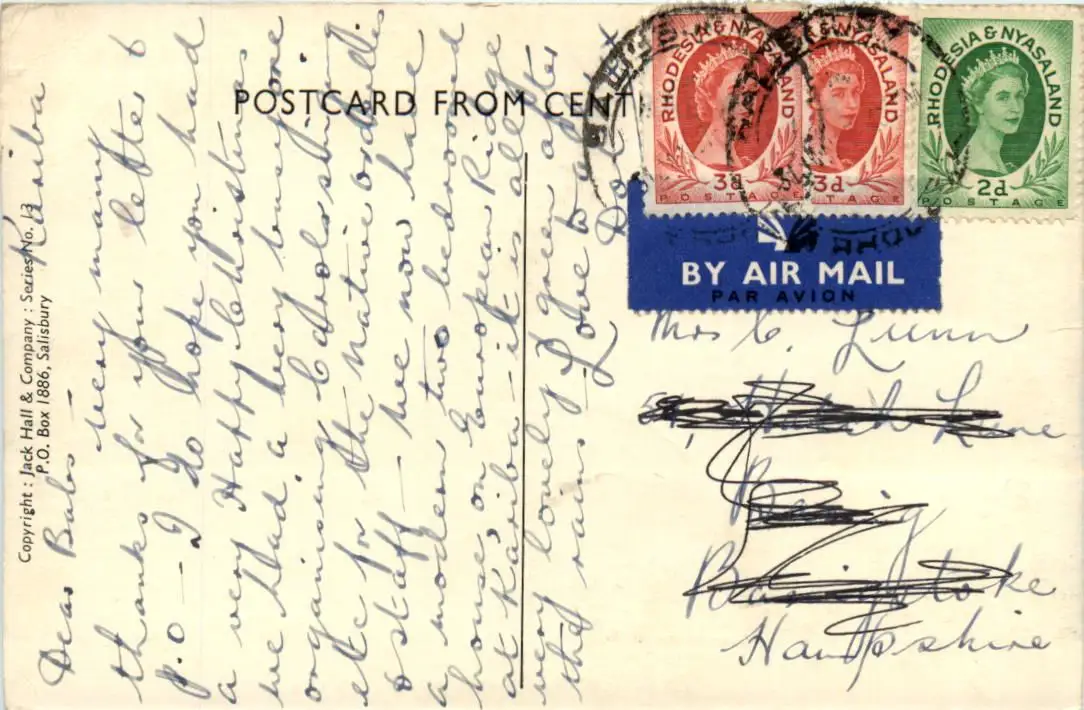 POSTCARD FROM CENT
RHODESIA & NYASALAND
3d
POSTAGE
RHODESIA & NYASALAND
3d
POSTAGE
RHODESIA & NYASALAND
2d
POSTAGE
BY AIR MAIL
PAR AVION
Copyright : Jack Hall & Company : Series No. 13
P.O. Box 1886, Salisbury
Kariba
Dear Babs –
very many
thanks for your letter &
P.O – I do hope you had
a very Happy Christmas
we had a very busy one
organising Carols
etc for the native orderlies
& staff – we now have
a modern two bedroomed
house on European Ridge
at Kariba – it is all
very lovely & green after
the rains.
Love to all
Dolly x
Mrs C. Lunn
Lane
Basingstoke
Hampshire